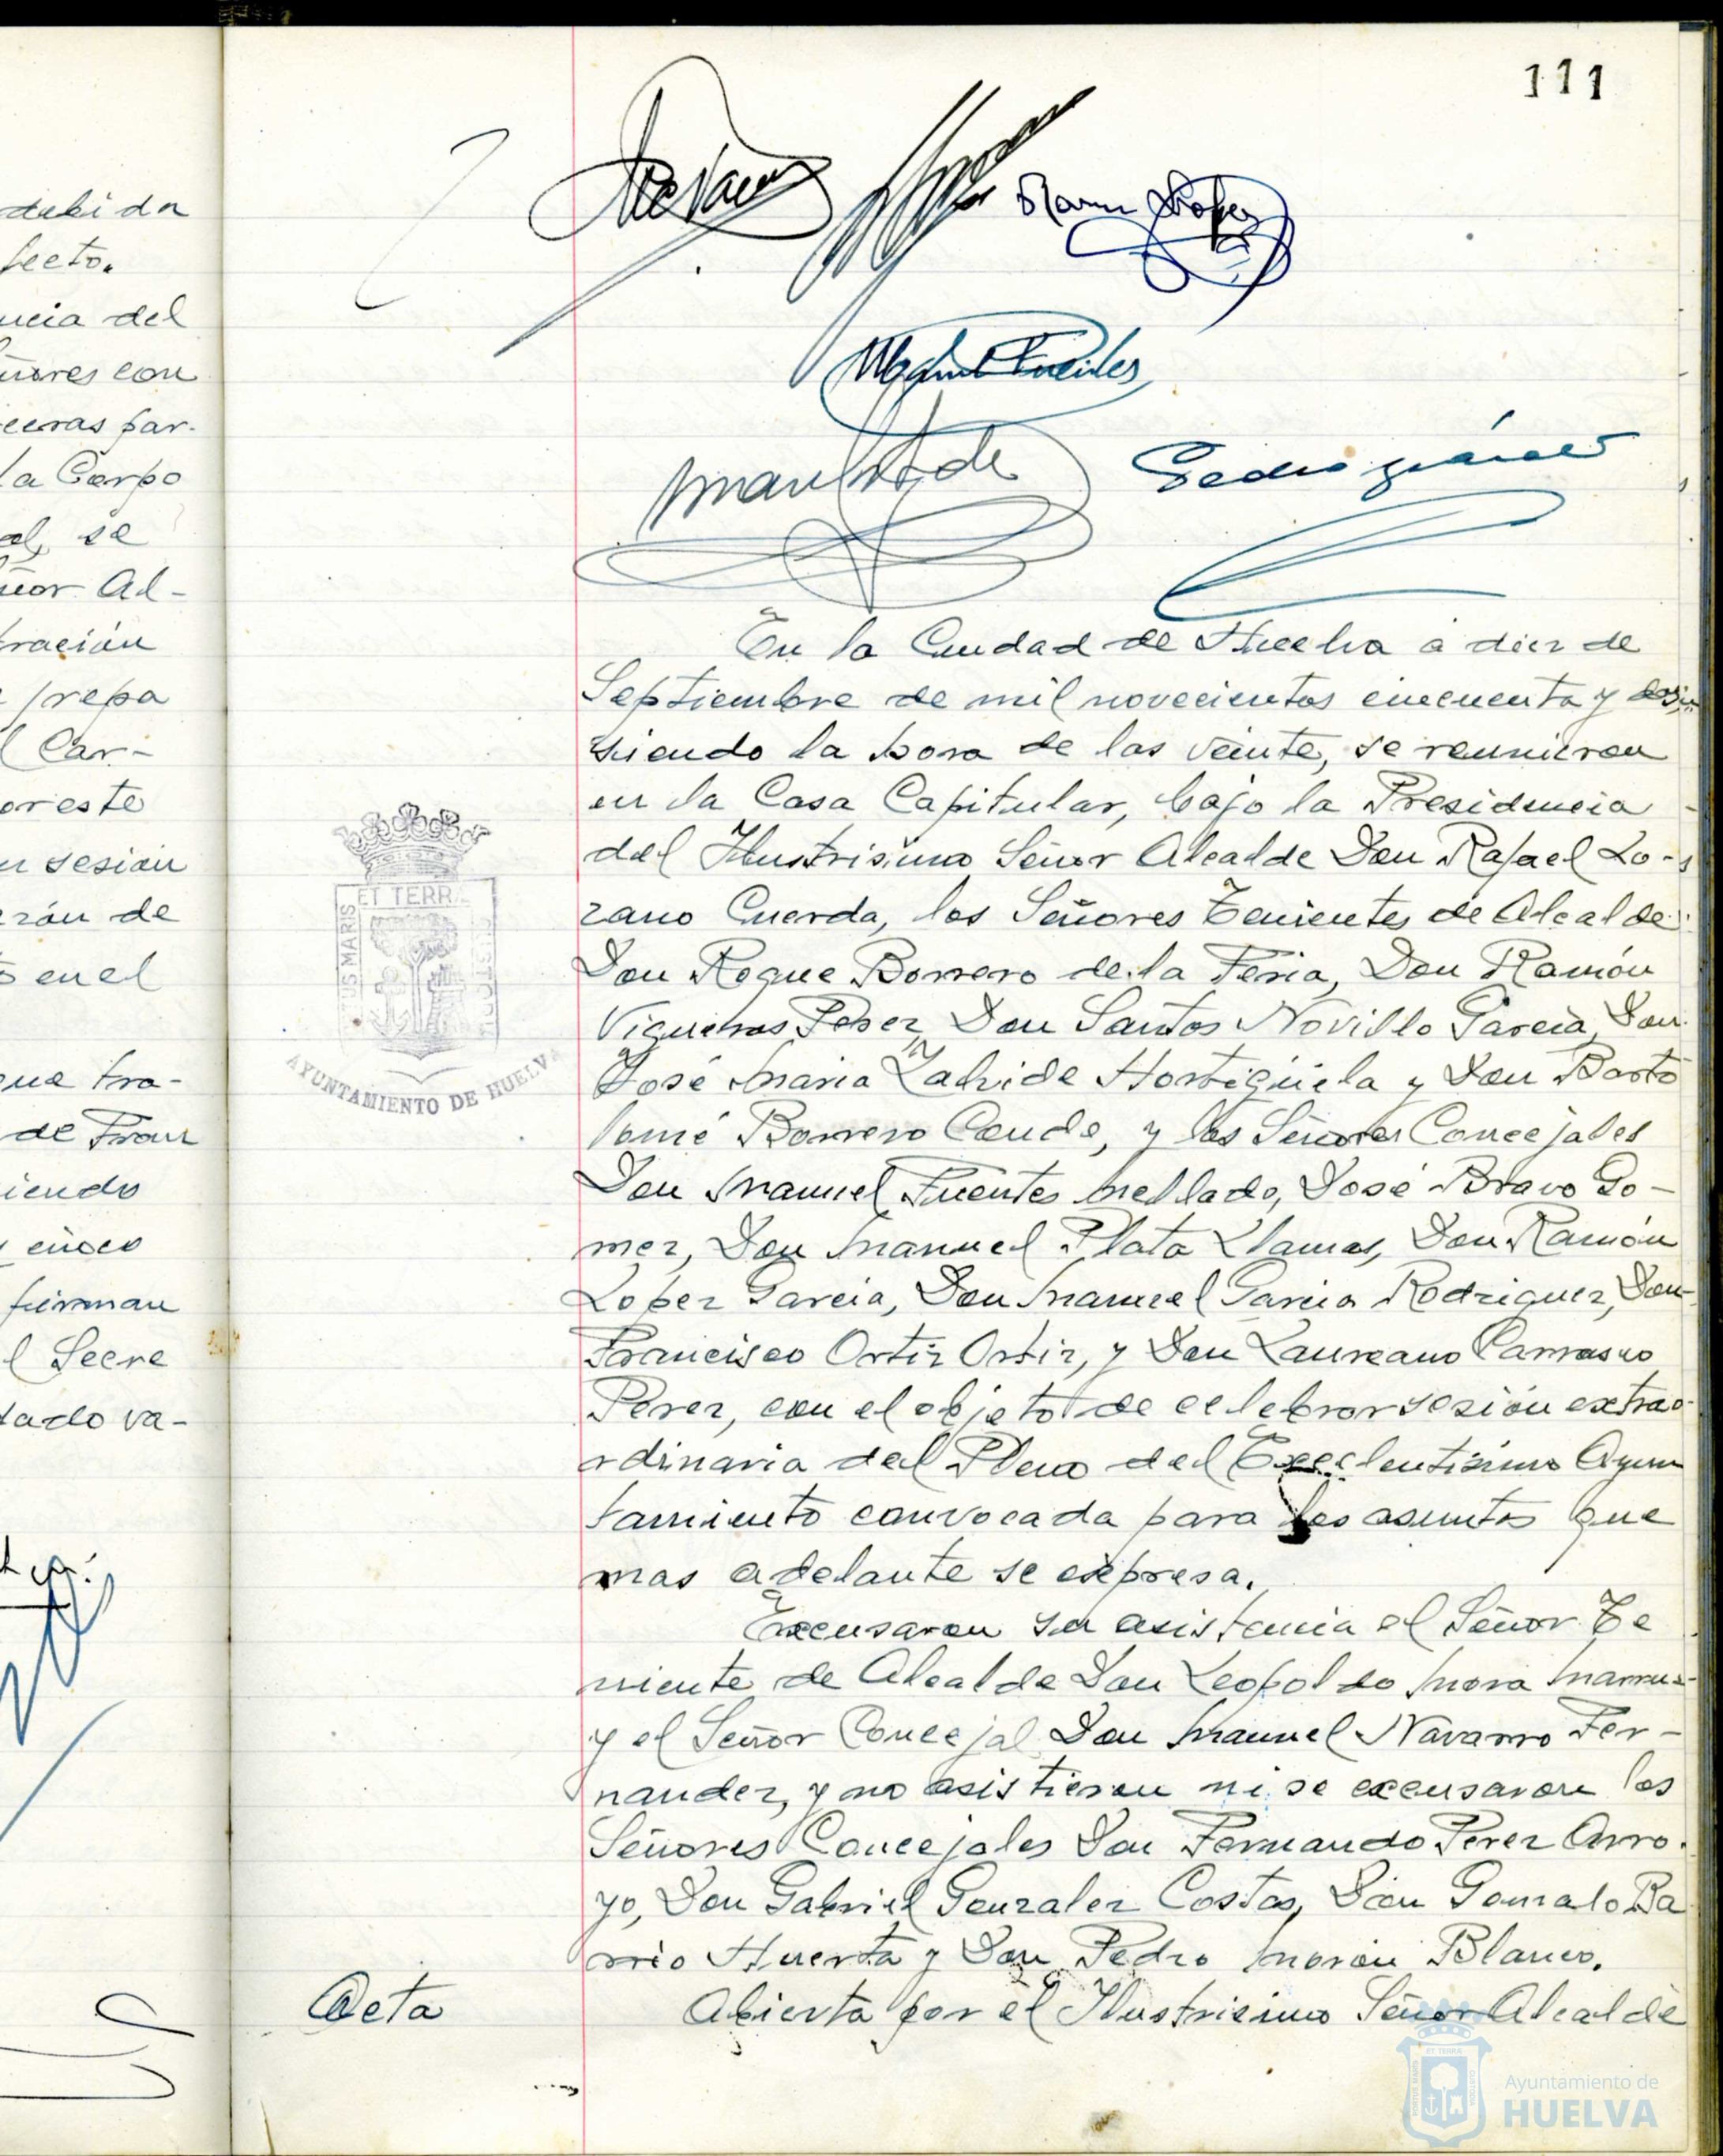 111
debida
fecto.
ncia del
ñores con
ceras par-
la Corpo
al, se
ñor Al-
ración
prepa
l Car-
or este
n sesión
zón de
o en el
que tra-
de Fran
iendo
y cinco
firman
l Secre
tado va-
Ramon Lopez
Manuel Fuentes
En la Ciudad de Huelva a diez de
Septiembre de mil novecientos cincuenta y dos,
siendo la hora de las veinte, se reunieron
en la Casa Capitular, bajo la Presidencia
del Ilustrisimo Señor Alcalde Don Rafael Lo-
zano Cuerda, los Señores Tenientes de Alcalde
Don Roque Borrero de la Feria, Don Ramón
Vigueras Perez, Don Santos Novillo Garcia, Don
José Maria Zahide Hortigüela y Don Barto
lomé Borrero Conde, y los Señores Concejales
Don Manuel Fuentes Mellado, José Bravo Go-
mez, Don Manuel Plata Llamas, Don Ramón
Lopez Garcia, Don Manuel Garcia Rodriguez, Don
Francisco Ortiz Ortiz, y Don Laureano Carrasco
Perez, con el objeto de celebrar sesión extrao-
rdinaria del Pleno del Excelentisimo Ayun
tamiento convocada para los asuntos que
mas adelante se expresa.
Excusaron su asistencia el Señor Te
niente de Alcalde Don Leopoldo Mora
y el Señor Concejal Don Manuel Navarro Fer-
nandez, y no asistieron ni se excusaron los
Señores Concejales Don Fernando Perez Arro-
yo, Don Gabriel Gonzalez Costas, Don Gonzalo Ba
rrio Huerta y Don Pedro Moron Blanco.
Acta
Abierta por el Ilustrisimo Señor Alcalde
ET TERR
TUS MARIS
CUSTODI
AYUNTAMIENTO DE HUELVA
Ayuntamiento de
HUELVA